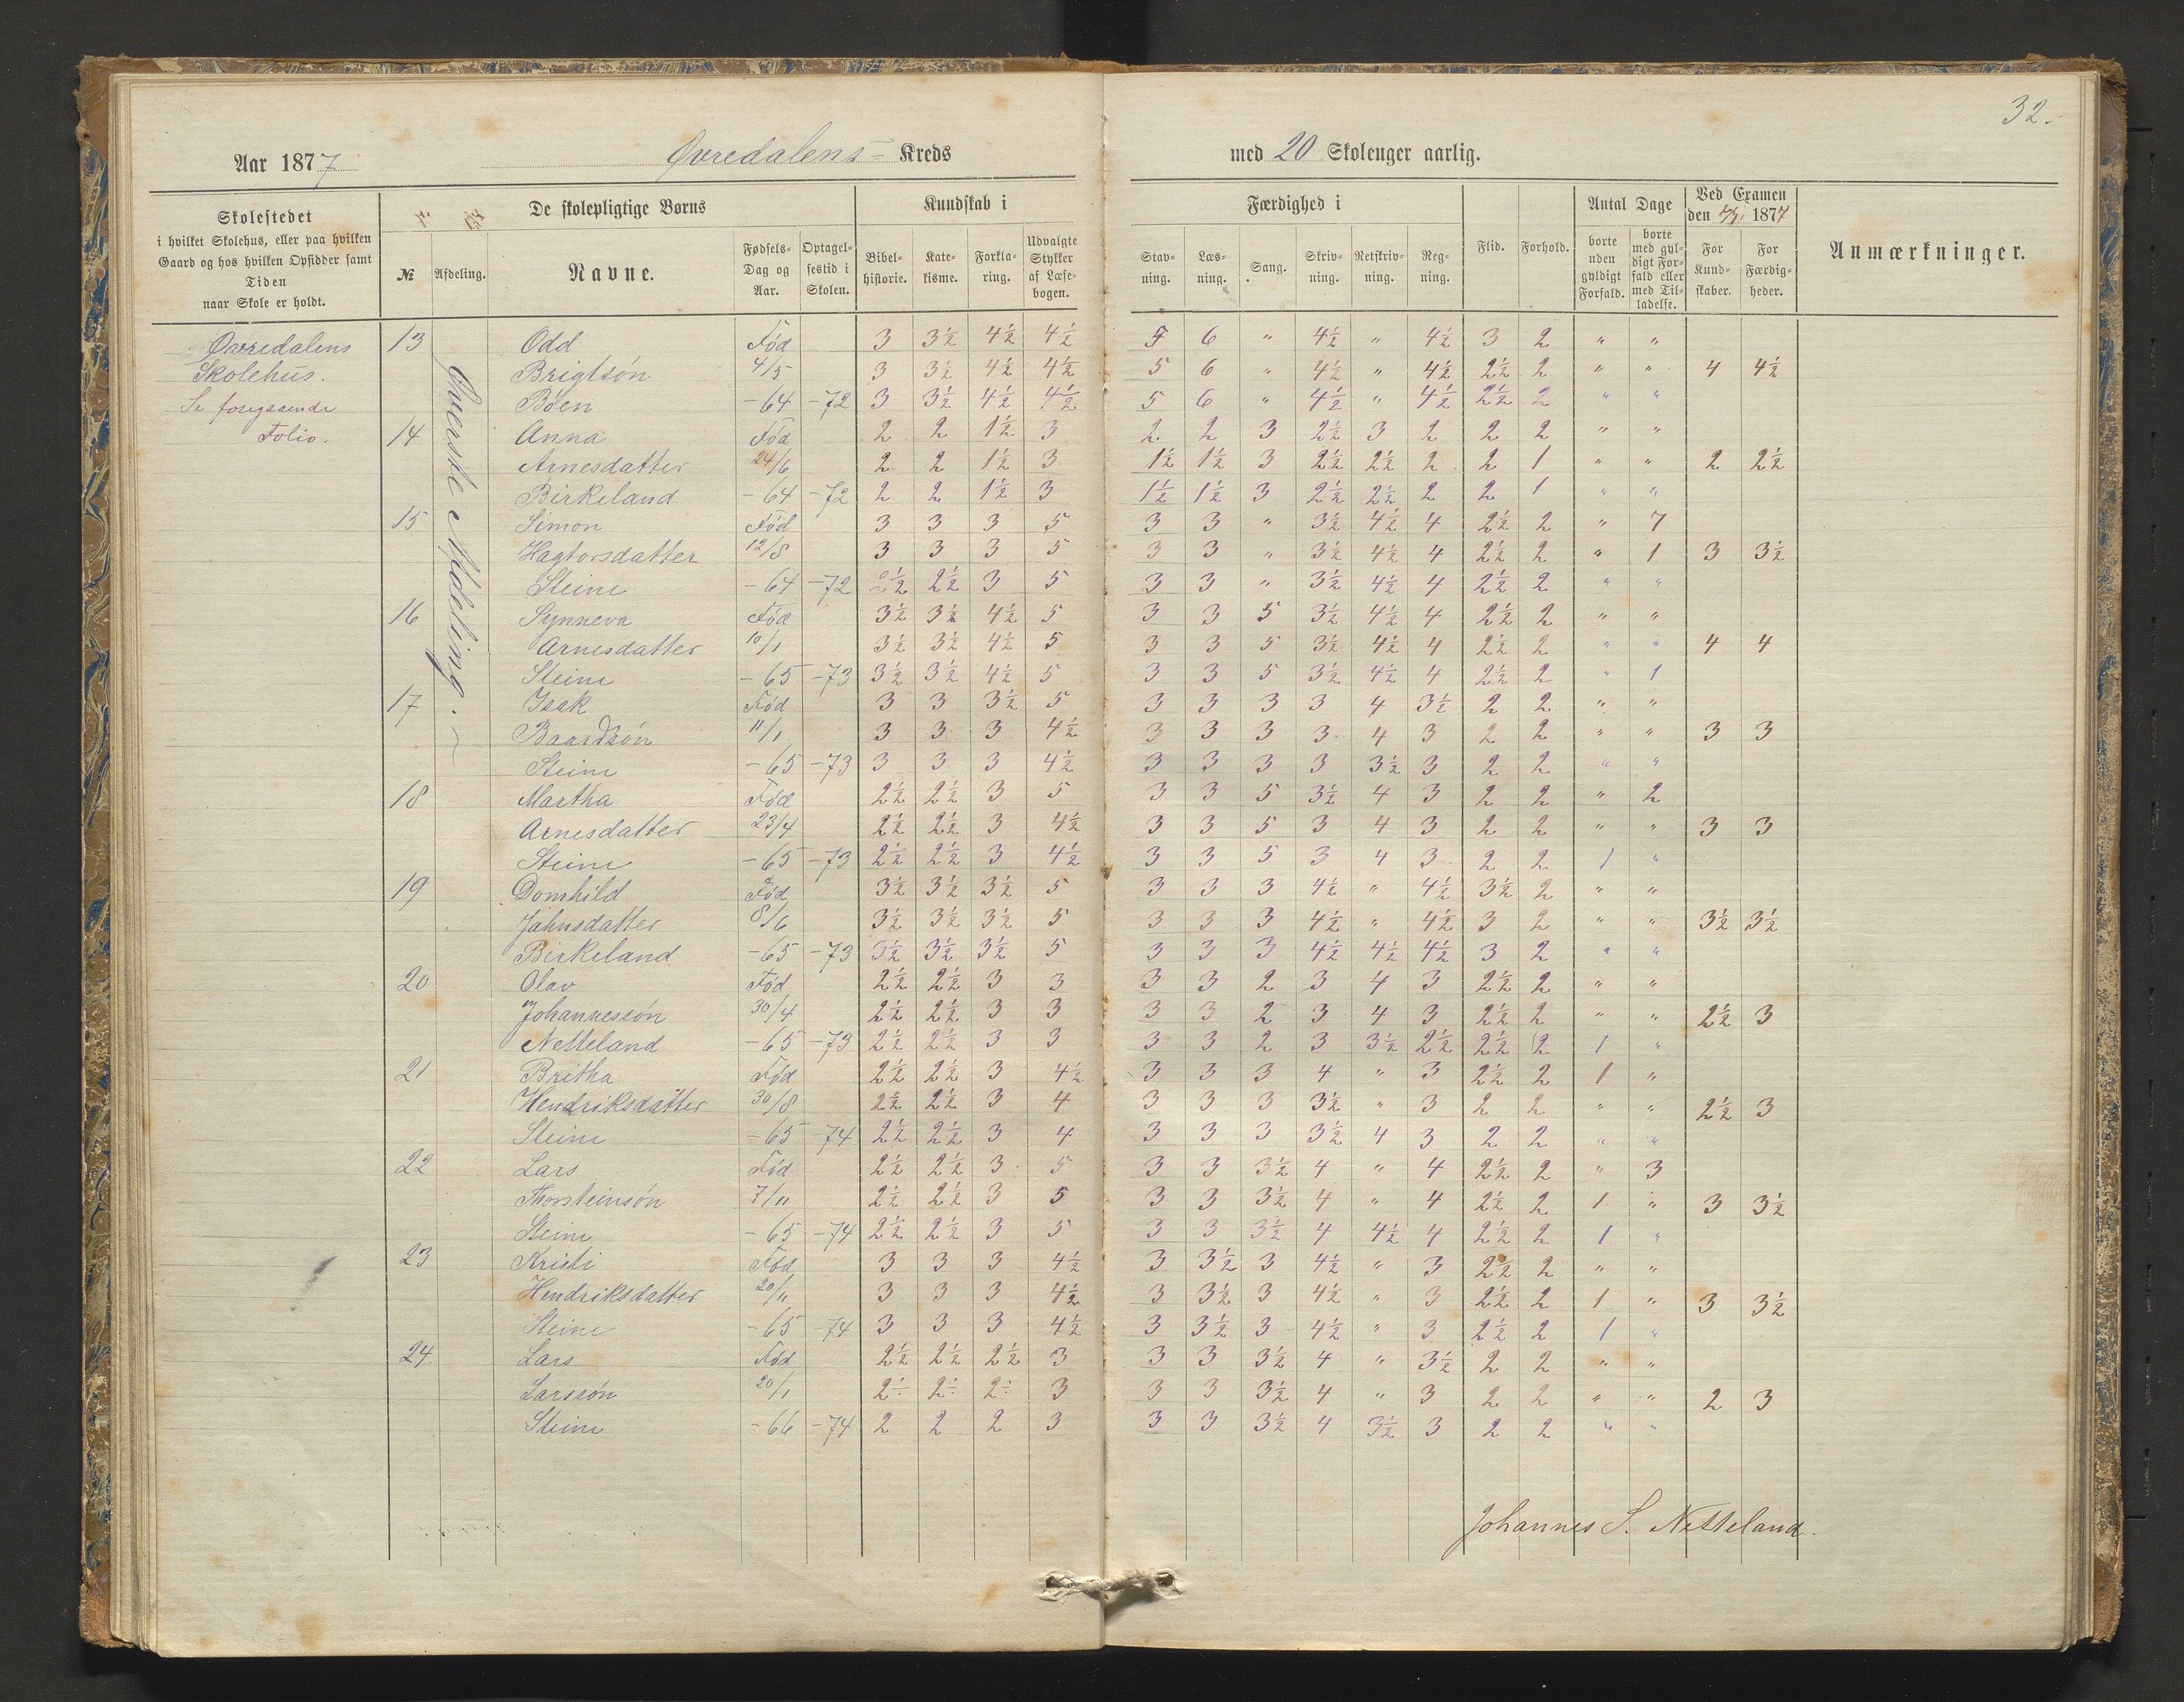 32.
Aar 1877 Øvredalens- Kreds med 20 Skoleuger aarlig.
Skolestedet
i hvilket Skolehus, eller paa hvilken
Gaard og hos hvilken Opsidder samt
Tiden
naar Skole er holdt.
De skolepligtige Børns
№ Afdeling. Navne. Fødsels-Dag og Aar. Optagel-sestid i Skolen.
Kundskab i
Bibel-historie. Kate-kisme. Forkla-ring. Udvalgte Stykker af Læse-bogen.
Færdighed i
Stav-ning. Læs-ning. Sang. Skriv-ning. Retskriv-ning. Reg-ning.
Flid. Forhold.
Antal Dage
borte uden gyldigt Forfald. borte med gyl-digt For-fald eller med Til-ladelse.
Ved Examen
den 1877
For Kund-skaber. For Færdig-heder.
Anmærkninger.
Øvredalens
Skolehus.
Se foregaaende
Folio.
Øverste Afdeling.
13 Odd Fød 3 3½ 4½ 4½ 5 6 " 4½ " 4½ 3 2 " "
Brigtsøn 4/5 3 3½ 4½ 4½ 5 6 " 4½ " 4½ 2½ 2 " " 4 4½
Bøen -64 -72 3 3½ 4½ 4½ 5 6 " 4½ " 4½ 2½ 2 " "
14 Anna Fød 2 2 1½ 3 2 2 3 2½ 3 2 2 2 " "
Arnesdatter 24/6 2 2 1½ 3 1½ 1½ 3 2½ 2½ 2 2 1 " " 2 2½
Birkeland -64 -72 2 2 1½ 3 1½ 1½ 3 2½ 2½ 2 2 1 " "
15 Simon Fød 3 3 3 5 3 3 " 3½ 4½ 4 2½ 2 " 7
Hagtorsdatter 12/8 3 3 3 5 3 3 " 3½ 4½ 4 2½ 2 " 1 3 3½
Steine -64 -72 2½ 2½ 3 5 3 3 " 3½ 4½ 4 2½ 2 " "
16 Synneva Fød 3½ 3½ 4½ 5 3 3 5 3½ 4½ 4 2½ 2 " "
Arnesdatter 10/1 3½ 3½ 4½ 5 3 3 5 3½ 4½ 4 2½ 2 " " 4 4
Steine -65 -73 3½ 3½ 4½ 5 3 3 5 3½ 4½ 4 2½ 2 " 1
17 Isak Fød 3 3 3½ 5 3 3 3 3 4 3½ 2 2 " "
Baardsøn 11/1 3 3 3 4½ 3 3 3 3 4 3 2 2 " " 3 3
Steine -65 -73 3 3 3 4½ 3 3 3 3 3½ 3 2 2 " "
18 Martha Fød 2½ 2½ 3 5 3 3 5 3½ 4 3 2 2 " 2
Arnesdatter 23/4 2½ 2½ 3 4½ 3 3 5 3 4 3 2 2 " " 3 3
Steine -65 -73 2½ 2½ 3 4½ 3 3 5 3 4 3 2 2 1 "
19 Domhild Fød 3½ 3½ 3½ 5 3 3 3 4½ " 4½ 3½ 2 " "
Jahnsdatter 8/6 3½ 3½ 3½ 5 3 3 3 4½ " 4½ 3 2 " " 3½ 3½
Birkeland -65 -73 3½ 3½ 3½ 5 3 3 3 4½ 4½ 4½ 3 2 " "
20 Olav Fød 2½ 2½ 3 3 3 3 2 3 4 3 2½ 2 " "
Johannessøn 30/4 2½ 2½ 3 3 3 3 2 3 4 3 2½ 2 " " 2½ 3
Netteland -65 -73 2½ 2½ 3 3 3 3 2 3 3½ 2½ 2½ 2 1 "
21 Britha Fød 2½ 2½ 3 4½ 3 3 3 4 " 3 2½ 2 1 "
Hendriksdatter 30/8 2½ 2½ 3 4 3 3 3 3½ " 3 2 2 " " 2½ 3
Steine -65 -74 2½ 2½ 3 4 3 3 3 3½ 4 3 2 2 " "
22 Lars Fød 2½ 2½ 3 5 3 3 3½ 4 " 4 2½ 2 " 3
Thorsteinsøn 7/11 2½ 2½ 3 5 3 3 3½ 4 " 4 2½ 2 1 " 3 3½
Steine -65 -74 2½ 2½ 3 5 3 3 3½ 4 4½ 4 2½ 2 1 "
23 Kristi Fød 3 3 3 4½ 3 3½ 3 4½ " 3 2½ 2 " "
Hendriksdatter 20/11 3 3 3 4½ 3 3½ 3 4½ " 3 2½ 2 1 " 3 3½
Steine -65 -74 3 3 3 4½ 3 3½ 3 4½ " 3 2½ 2 1 "
24. Lars Fød 2½ 2½ 2½ 3 3 3 3½ 4 " 3½ 2 2 " "
Larssøn 20/1 2÷ 2÷ 2÷ 3 3 3 3½ 4 " 3 2 2 " " 2 3
Steine -66 -74 2 2 2 3 3 3 3½ 4 3½ 3 2 2 " "
Johannes S. Netteland.